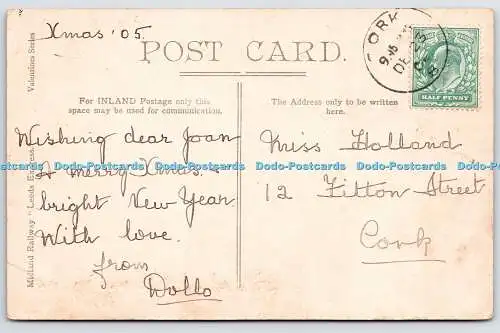 Xmas '05.
POST CARD.
For INLAND Postage only this
space may be used for communication.
The Address only to be written
here.
Wishing dear Joan
A merry Xmas.
bright New Year
With love.
from
Dollo
Miss Holland
12 Fitton Street
Cork
Valentines Series
Midland Railway "Leeds Express"
CORK
DE 23
05
HALF PENNY
Dodo-Postcards Dodo-Postcards Dodo-Postcards Dodo-Postcards Dodo-Postcards